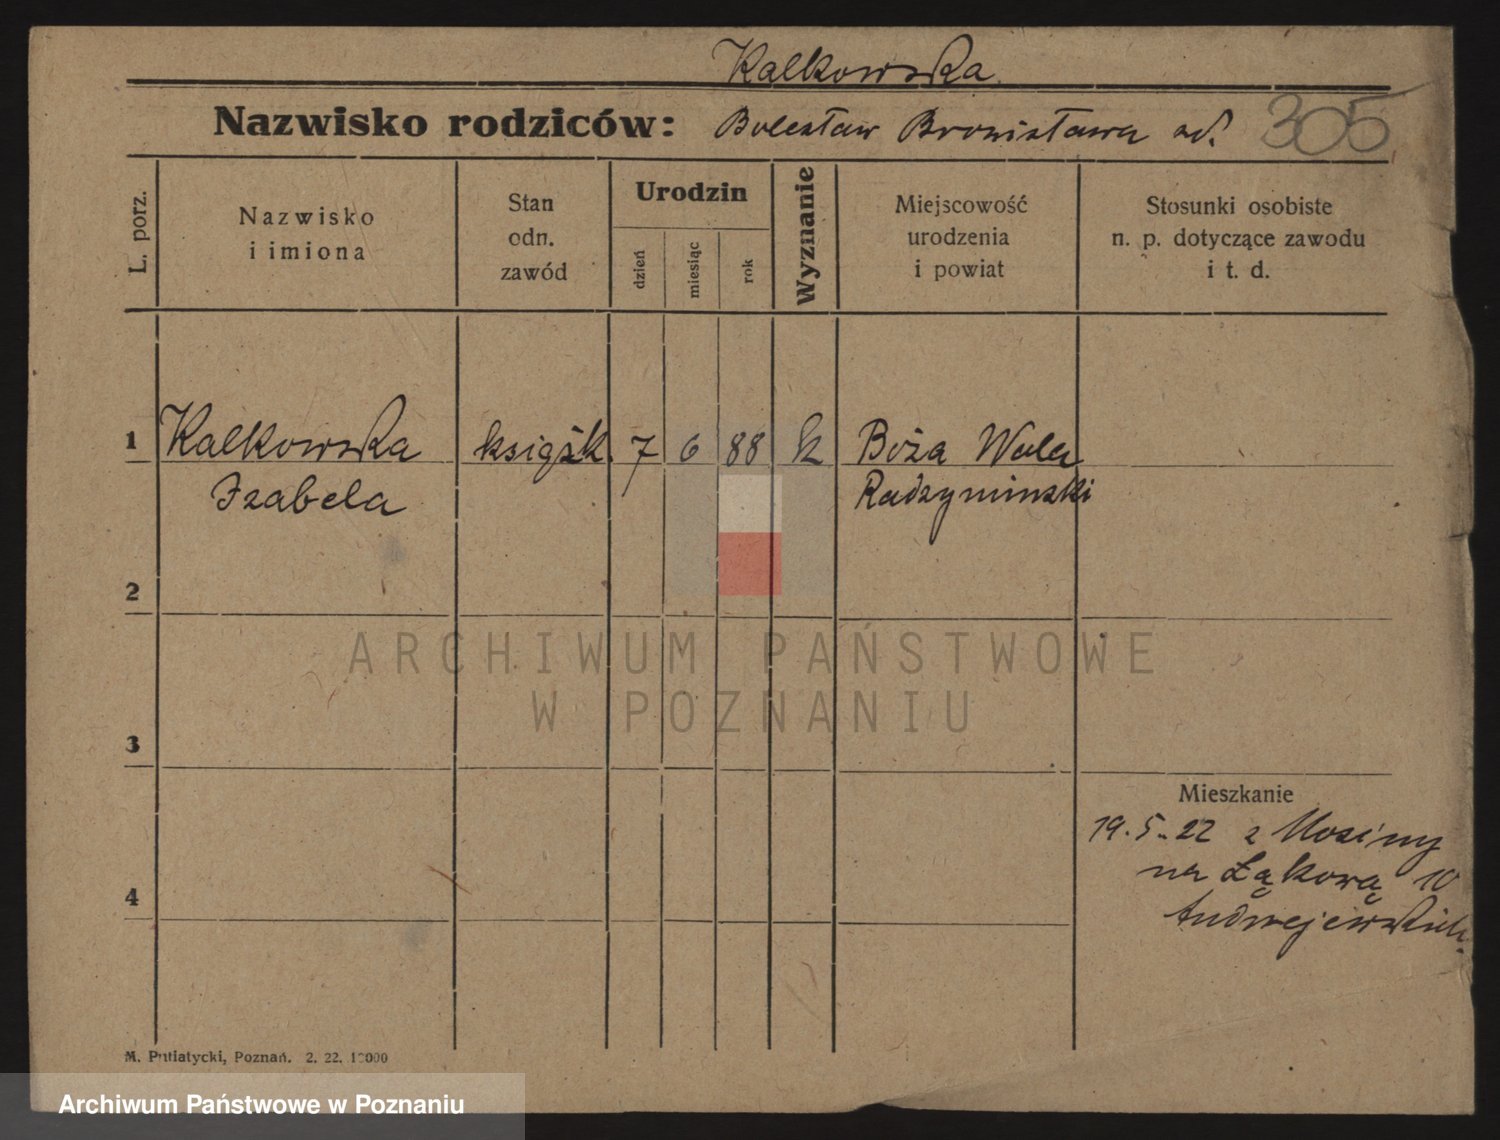 Kalkowska
Nazwisko rodziców: Bolesław Bronisława 305
L. porz.
Nazwisko
i imiona
Stan
odn.
zawód
Urodzin
dzień
miesiąc
rok
Wyznanie
Miejscowość
urodzenia
i powiat
Stosunki osobiste
n. p. dotyczące zawodu
i t. d.
1 Kalkowska książk. 7 6 88 k Boża Wola
Izabela Radzyminski
2
ARCHIWUM PAŃSTWOWE
W POZNANIU
3
Mieszkanie
19.5.-22 z Mosiny
na Łąkową 10
4
M. Putiatycki, Poznań. 2. 22. 10000
Archiwum Państwowe w Poznaniu